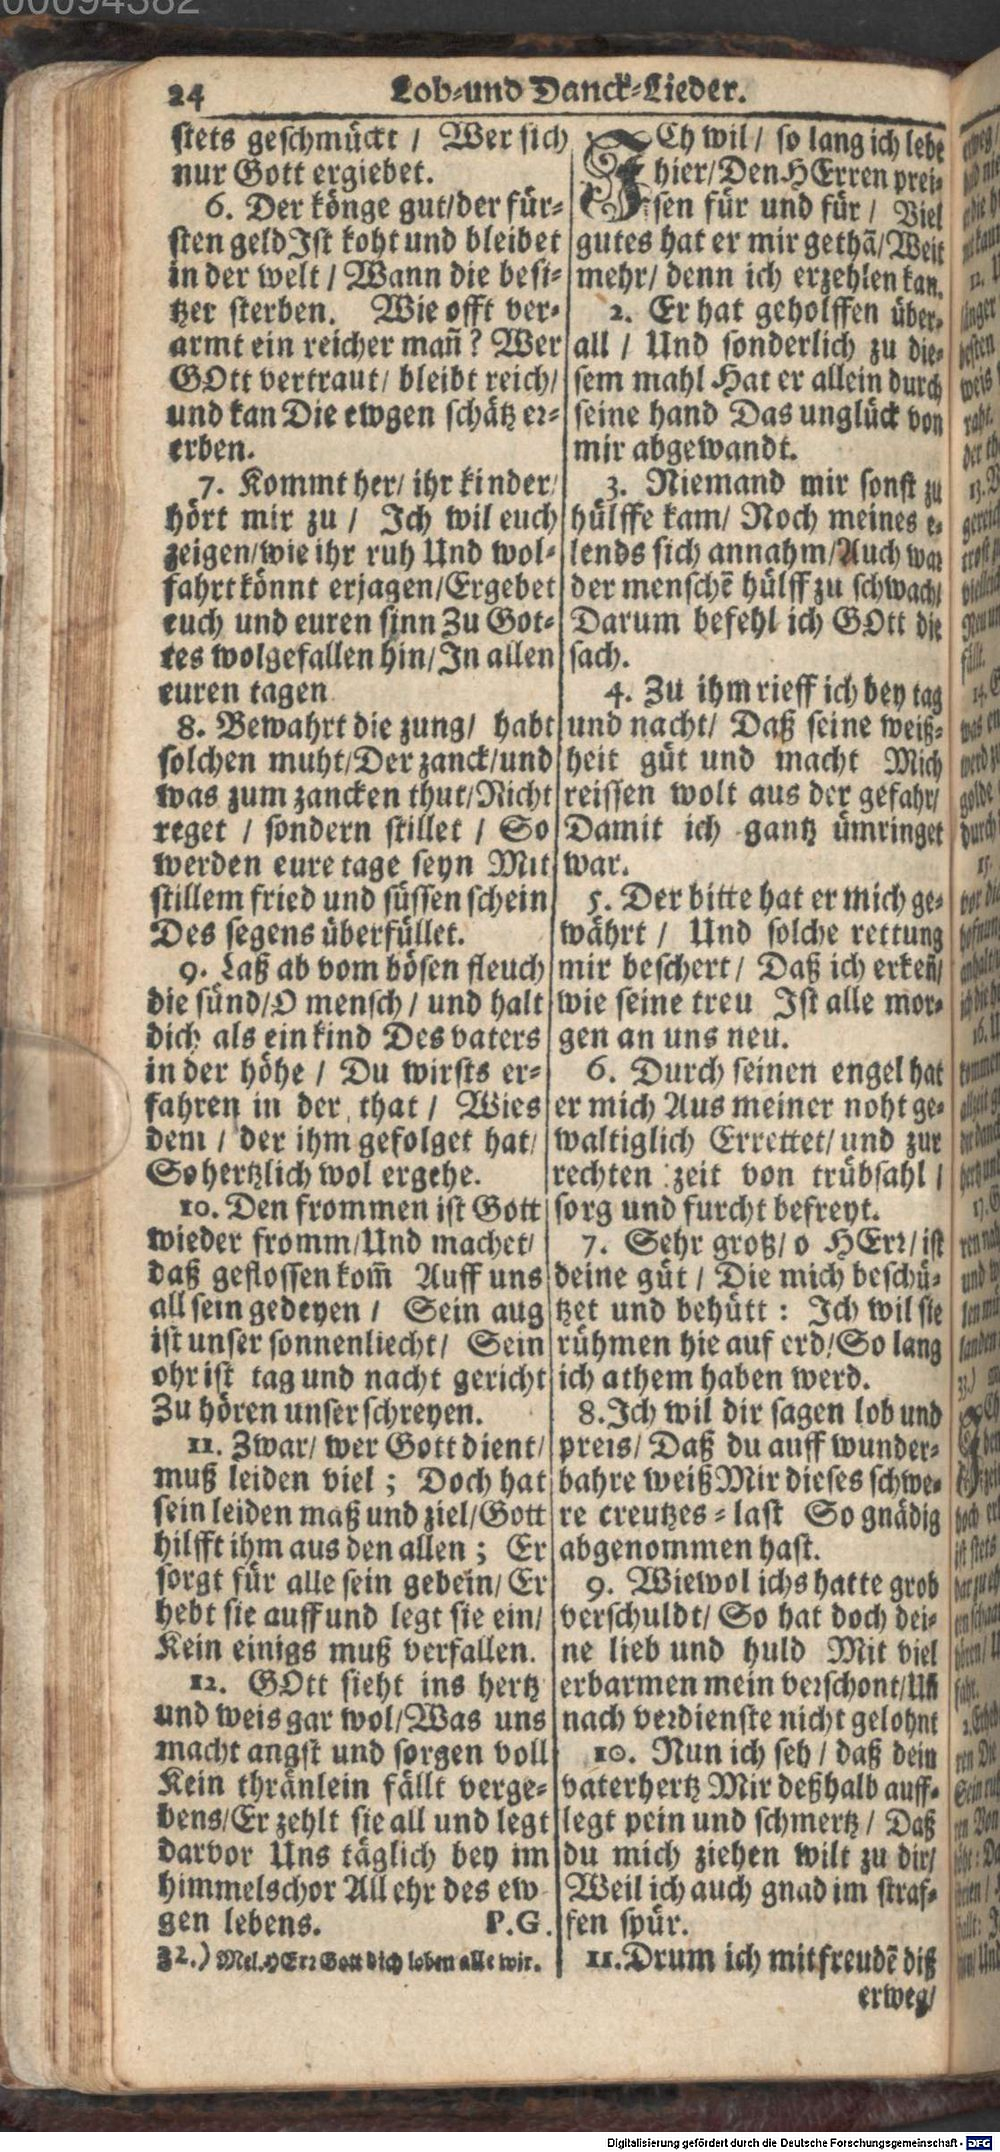 00094382
24 Lob-und Danck-Lieder.
stets geschmückt / Wer sich
nur Gott ergiebet.
6. Der könge gut/der für-
sten geld Ist koht und bleibet
in der welt / Wann die besi-
tzer sterben. Wie offt ver-
armt ein reicher mañ? Wer
GOtt vertraut/ bleibt reich/
und kan Die ewgen schätz er-
erben.
7. Kommt her/ ihr kinder/
hört mir zu / Ich wil euch
zeigen/wie ihr ruh Und wol-
fahrt könnt erjagen/Ergebet
euch und euren sinn Zu Got-
tes wolgefallen hin/In allen
euren tagen
8. Bewahrt die zung/ habt
solchen muht/Der zanck/und
was zum zancken thut/Nicht
reget / sondern stillet / So
werden eure tage seyn Mit
stillem fried und süssen schein
Des segens überfüllet.
9. Laß ab vom bösen fleuch
die sünd/O mensch / und halt
dich als ein kind Des vaters
in der höhe / Du wirsts er-
fahren in der that / Wies
dem / der ihm gefolget hat/
So hertzlich wol ergehe.
10. Den frommen ist Gott
wieder fromm/Und machet/
daß geflossen kom̃ Auff uns
all sein gedeyen / Sein aug
ist unser sonnenliecht/ Sein
ohr ist tag und nacht gericht
Zu hören unser schreyen.
11. Zwar/ wer Gott dient/
muß leiden viel ; Doch hat
sein leiden maß und ziel/Gott
hilfft ihm aus den allen ; Er
sorgt für alle sein gebein/ Er
hebt sie auff und legt sie ein/
Kein einigs muß verfallen.
12. GOtt sieht ins hertz
und weis gar wol/Was uns
macht angst und sorgen voll
Kein thränlein fällt verge-
bens/Er zehlt sie all und legt
darvor Uns täglich bey im
himmelschor All ehr des ew
gen lebens. P.G.
32.) Mel. HErr Gott dich loben alle wir.
ICh wil / so lang ich lebe
hier/Den HErren prei-
sen für und für / Viel
gutes hat er mir gethã/Weit
mehr/ denn ich erzehlen kan.
2. Er hat geholffen über-
all / Und sonderlich zu die-
sem mahl Hat er allein durch
seine hand Das unglück von
mir abgewandt.
3. Niemand mir sonst zu
hülffe kam/ Noch meines e-
lends sich annahm/Auch war
der menschẽ hülff zu schwach/
Darum befehl ich GOtt die
sach.
4. Zu ihm rieff ich bey tag
und nacht/ Daß seine weiß-
heit güt und macht Mich
reissen wolt aus der gefahr/
Damit ich gantz ümringet
war.
5. Der bitte hat er mich ge-
währt / Und solche rettung
mir beschert/ Daß ich erkeñ/
wie seine treu Ist alle mor-
gen an uns neu.
6. Durch seinen engel hat
er mich Aus meiner noht ge-
waltiglich Errettet/ und zur
rechten zeit von trübsahl /
sorg und furcht befreyt.
7. Sehr groß/ o HErr/ ist
deine güt / Die mich beschü-
tzet und behütt : Ich wil sie
rühmen hie auf erd/So lang
ich athem haben werd.
8. Ich wil dir sagen lob und
preis/ Daß du auff wunder-
bahre weiß Mir dieses schwe-
re creutzes-last So gnädig
abgenommen hast.
9. Wiewol ichs hatte grob
verschuldt/ So hat doch dei-
ne lieb und huld Mit viel
erbarmen mein verschont/Uñ
nach verdienste nicht gelohnt
10. Nun ich seh / daß dein
vaterhertz Mir deßhalb auff-
legt pein und schmertz / Daß
du mich ziehen wilt zu dir/
Weil ich auch gnad im straf-
fen spür.
11. Drum ich mit freudẽ diß
erweg/
Digitalisierung gefördert durch die Deutsche Forschungsgemeinschaft - DFG